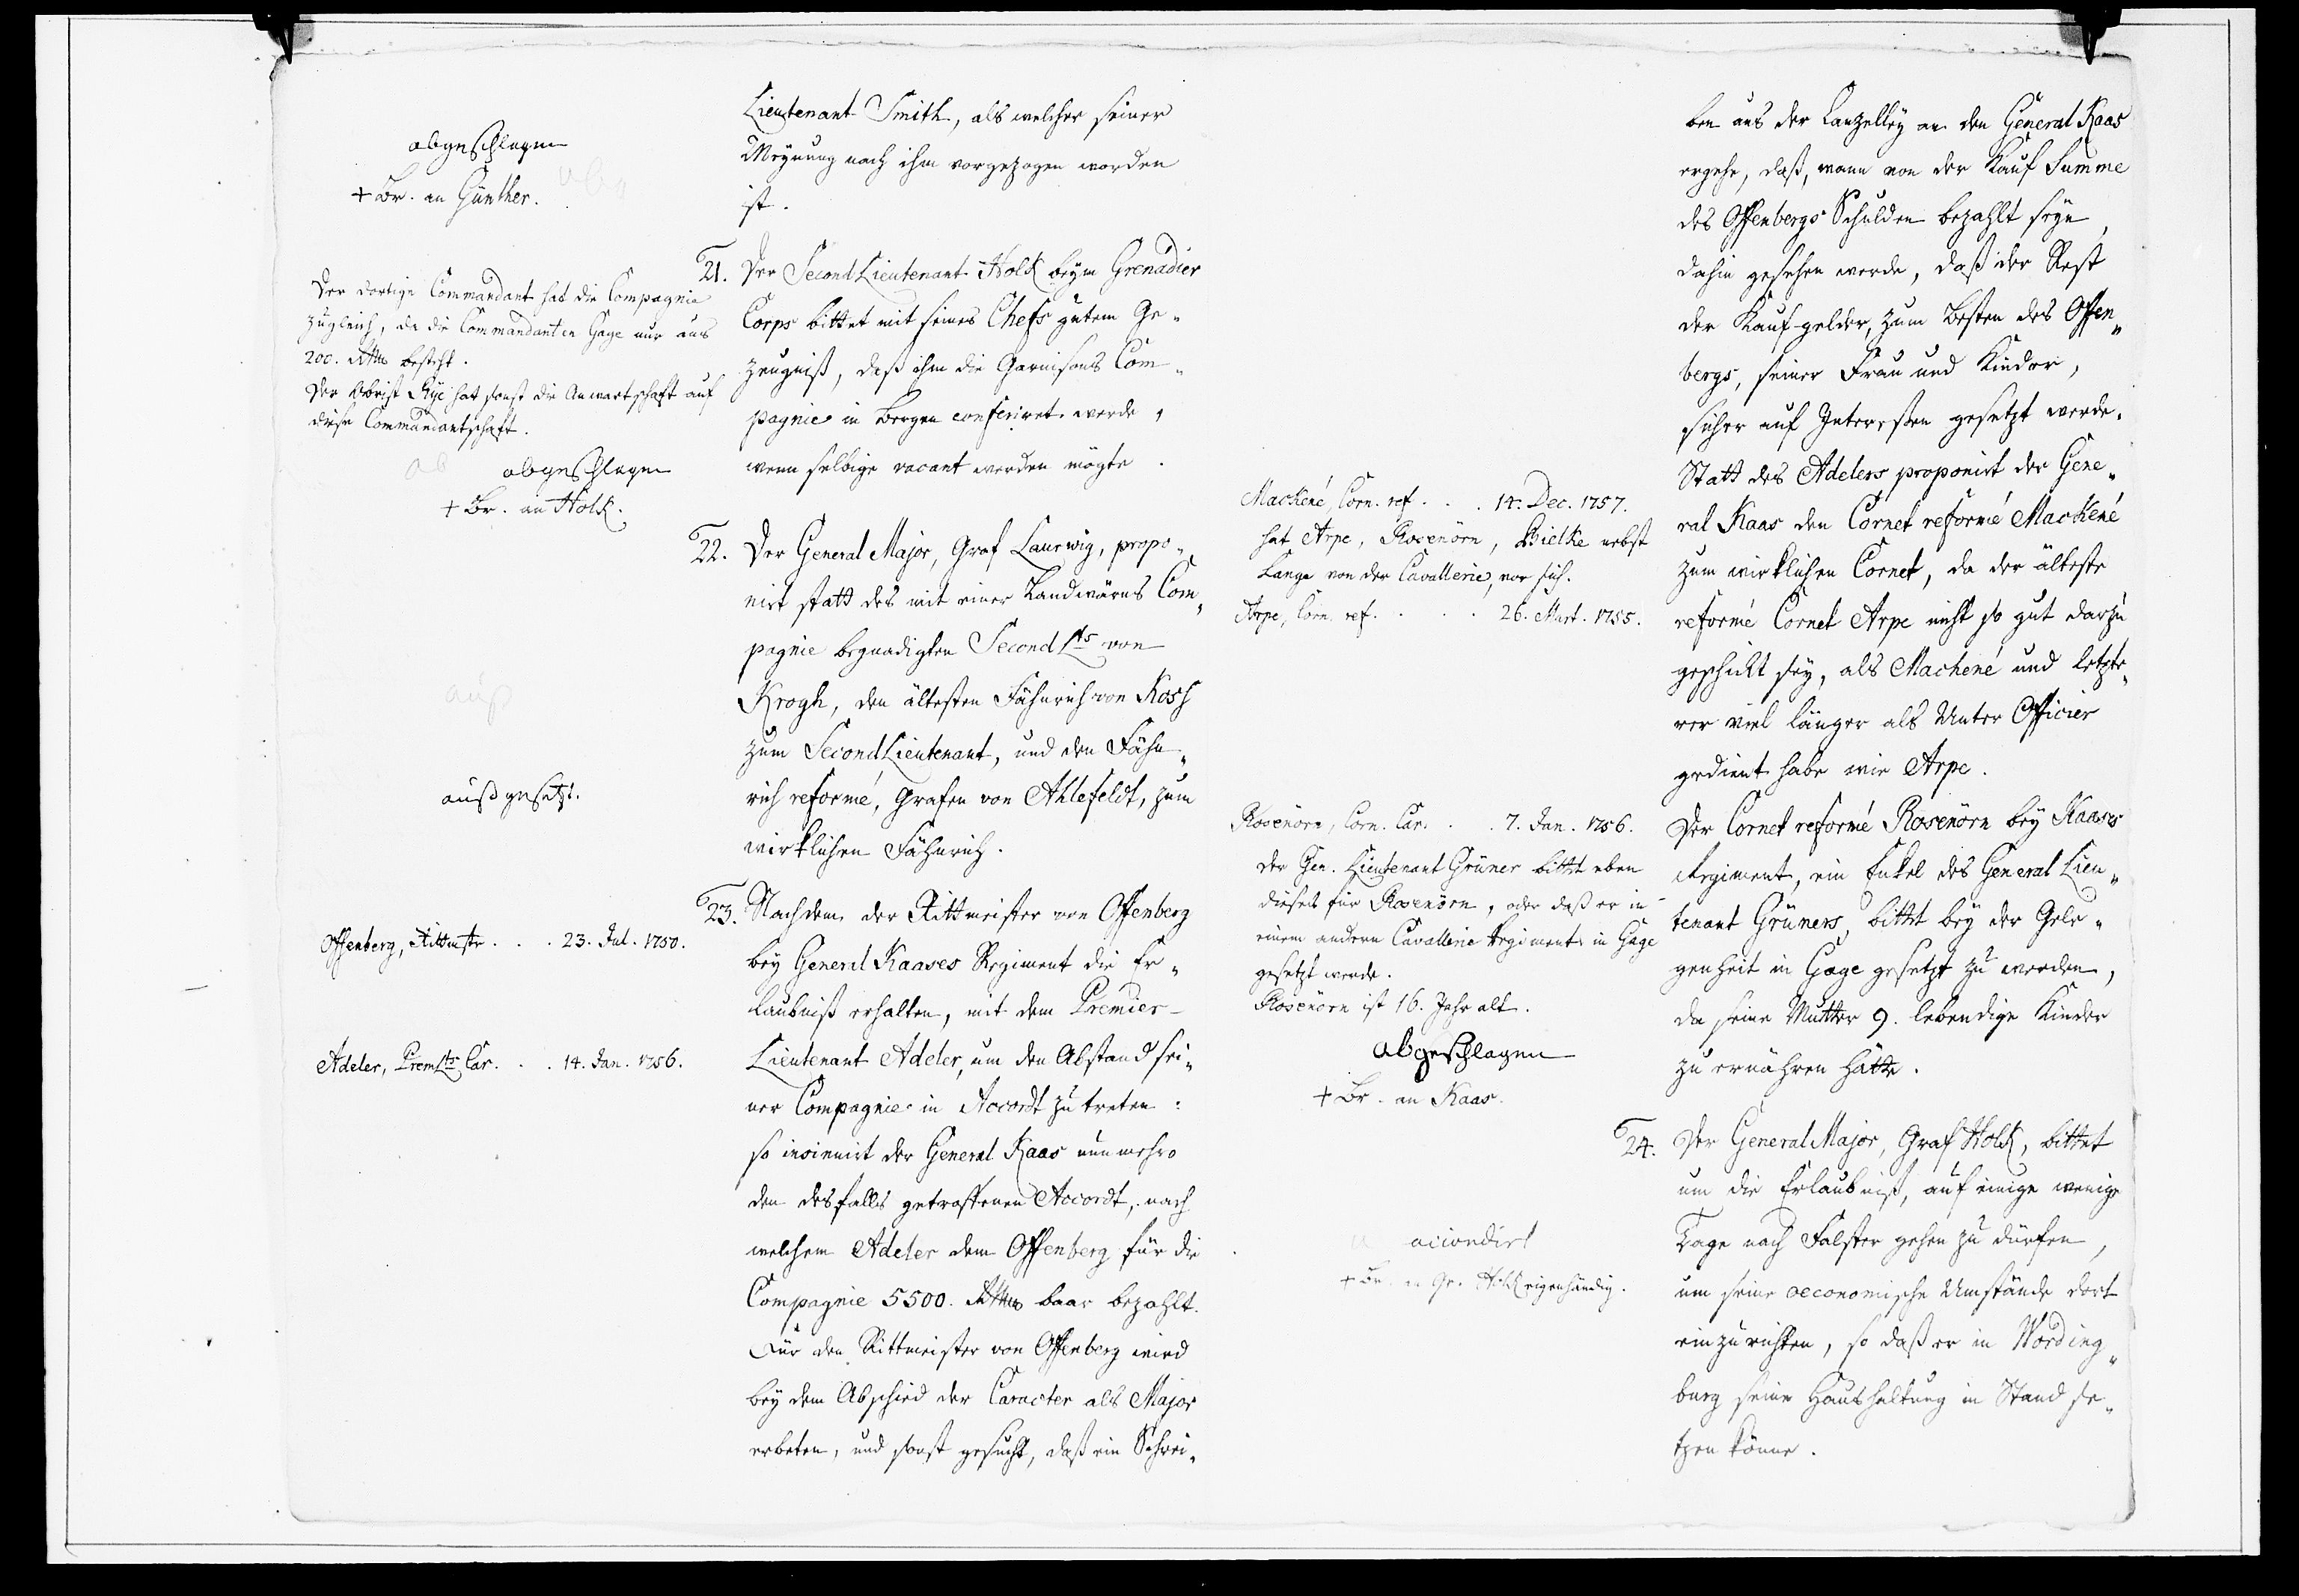 abgeschlagen
+ Br. an Günther.
Der dortige Commandant hat die Compagnie
zugleich, da die Commandanten Gage nur aus
200. Rthlr besteht.
Der Obrist Rye hat sonst die Anwartschaft auf
diese Commandantschaft.
abgeschlagen
+ Br. an Holk.
ausgesetzt.
Offenberg, Rittmstr. . . . 23. Jul. 1750.
Adeler, PremLts Car. . . 14. Jan. 1756.
Lieutenant Smith, als welcher seiner
Meynung nach ihm vorgezogen worden
ist.
21. Der SecondLieutenant Holk beym Grenadier
Corps bittet mit seines Chefs gutem Ge-
zeugniß, daß ihm die Garnisons Com-
pagnie in Bergen conferiret werde,
wenn selbige vacant werden mögte.
22. Der General Major, Graf Laurwig, propo-
nirt statt des mit einer Landwärns Com-
pagnie begnadigten Second Lts von
Krogh, den ältesten Fähnrich von Koss
zum SecondLieutenant, und den Fähn-
rich reformé, Grafen von Ahlefeldt, zum
wirklichen Fähnrich.
23. Nachdem der Rittmeister von Offenberg
bey General Kaases Regiment die Er-
laubniß erhalten, mit dem Premier-
Lieutenant Adeler, um den Abstand sei-
ner Compagnie in Accordt zu treten:
so insinuirt der General Kaas nunmehro
den desfalls getroffenen Accordt, nach
welchem Adeler dem Offenberg für die
Compagnie 5500. Rthlr baar bezahlt.
Für den Rittmeister von Offenberg wird
bey dem Abschied der Caracter als Major
erbeten, und sonst gesucht, daß ein Schrei-
Mackené, Corn. ref. . . . 14. Dec. 1757.
hat Arpe, Rosenörn, Bielke nebst
Lange von der Cavallerie, vor sich.
Arpe, Corn. ref. . . . 26. Mart. 1755.
Rosenörn, Corn. Car. . . 7. Jan. 1756.
der Gen. Lieutenant Grüner bittet eben
dieses für Rosenörn, oder daß er in
einem andern Cavallerie Regiment in Gage
gesetzt werde.
Rosenörn ist 16. Jahr alt.
abgeschlagen
+ Br. an Kaas.
accordirt
+ Br. an Gr. Holk eigenhändig.
ben aus der Canzelley an den General Kaas
ergehe, daß, wann von der Kauf Summe
des Offenbergs Schulden bezahlt seyn,
dahin gesehen werde, daß der Rest
der Kaufgelder, zum Besten des Offen-
bergs, seiner Frau und Kinder,
sicher auf Interessen gesetzt werde.
Statt des Adelers proponirt der Gene-
ral Kaas den Cornet reformé Mackené
zum wirklichen Cornet, da der älteste
reformé Cornet Arpe nicht so gut darzu
geschickt sey, als Mackené und letzte-
rer viel länger als Unter Officier
gedient habe wie Arpe.
Der Cornet reformé Rosenörn bey Kaases
Regiment, ein Enkel des General Lieu-
tenant Grüners, bittet bey der Gele-
genheit in Gage gesetzt zu werden,
da seine Mutter 9. lebendige Kinder
zu ernähren hätte.
24. Der General Major, Graf Holk, bittet
um die Erlaubniß, auf einige wenige
Tage nach Falster gehen zu dürfen,
um seine oeconomische Umstände dort
einzurichten, so daß er in Wording-
burg seine Haushaltung in Stand se-
tzen könne.